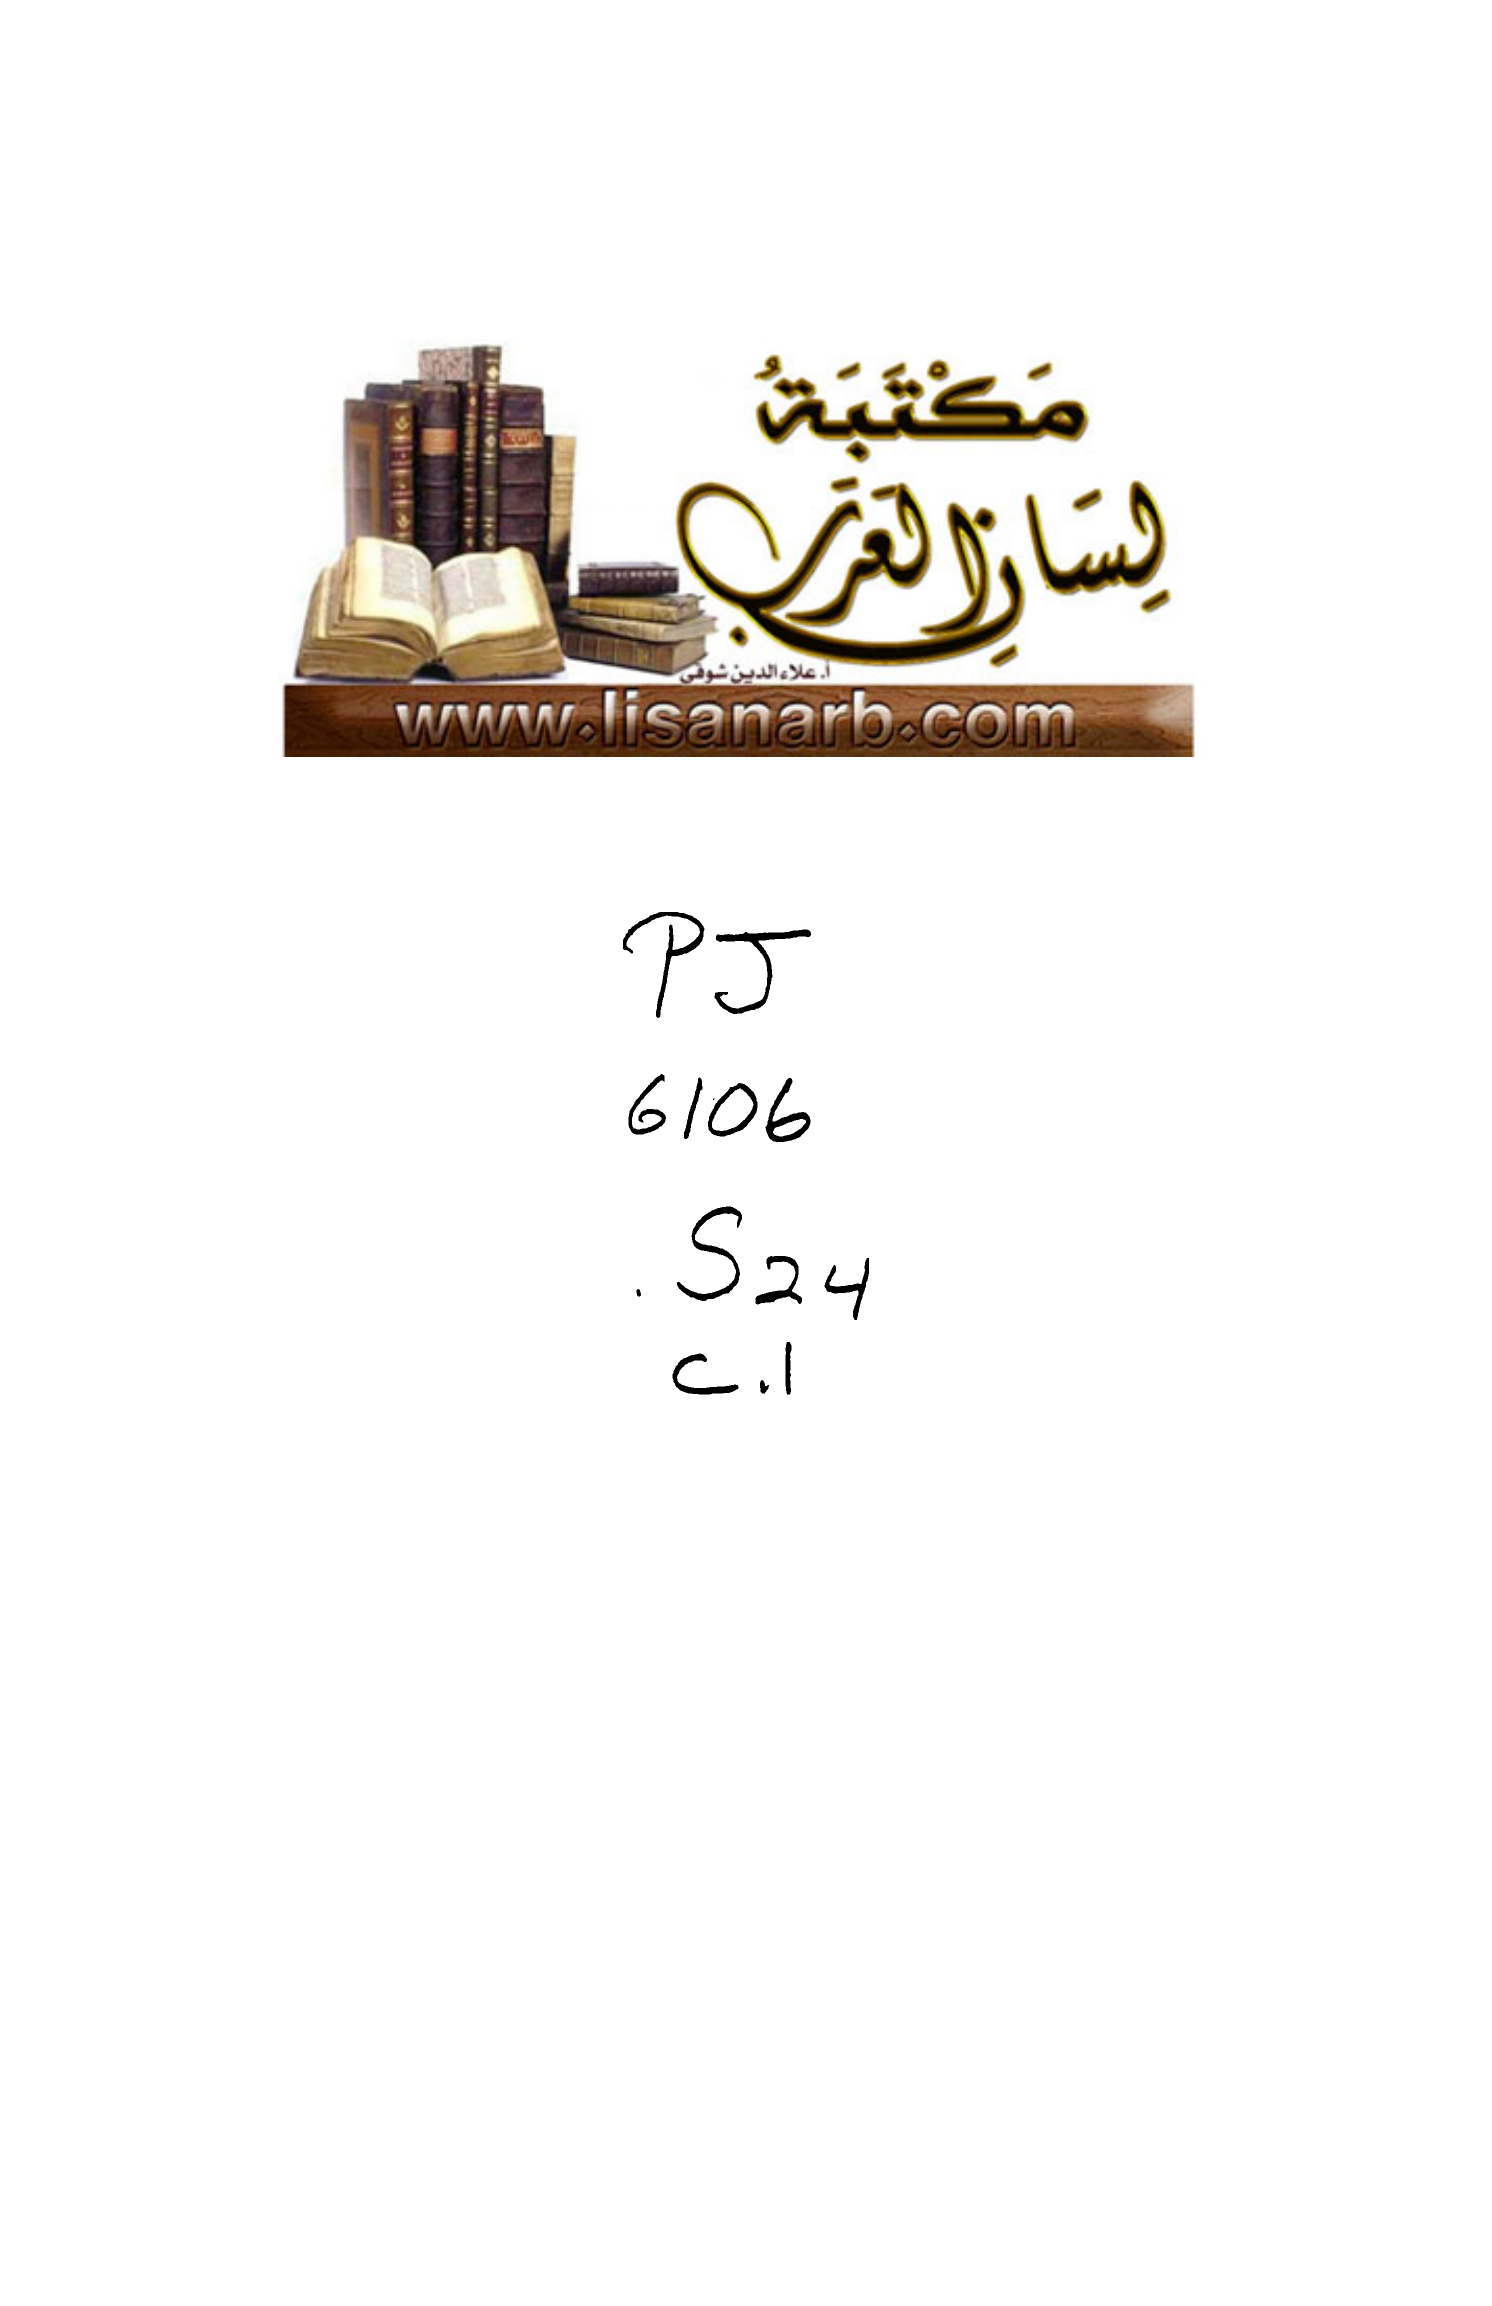 مَكْتَبَةُ
لِسَانِ الْعَرَبِ
أ. علاء الدين شوقى
www.lisanarb.com
PJ
6106
.S24
c.1